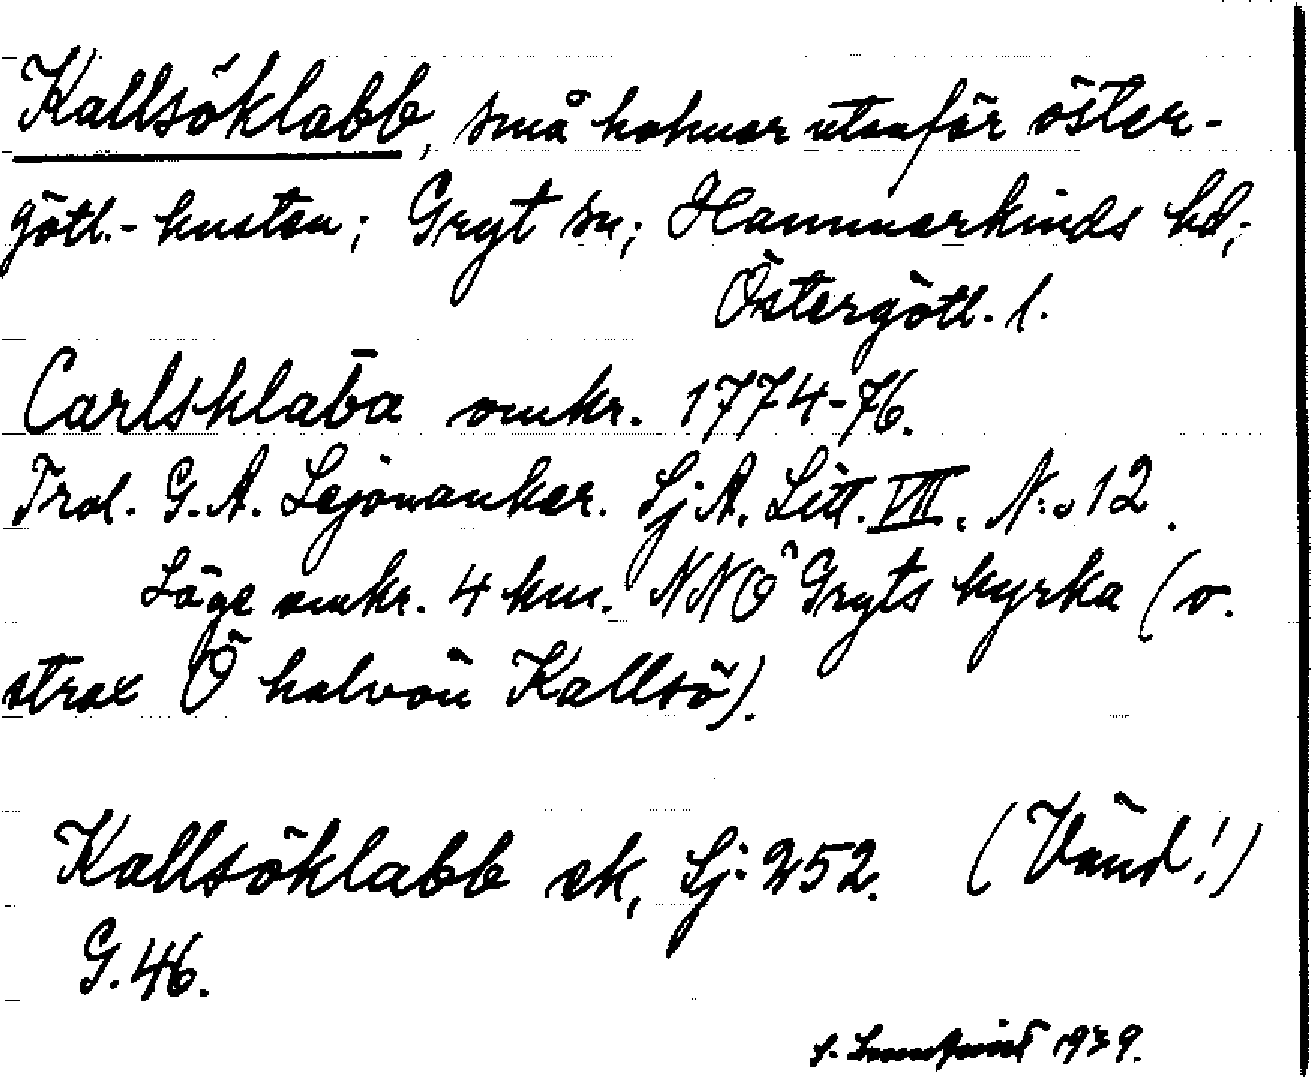 Kallsöklabb, små holmar utanför öster-
götl.-kusten; Gryt sn; Hammarkinds hd;
Östergötl. l.
Carlsklaba omkr. 1774-76.
Trol. G. A. Lejonanker. Sj. A. Litt. VII. N:o 12.
Läge omkr. 4 km. NNÖ Gryts kyrka (o.
strax Ö halvön Kallsö).
Kallsöklabb ek, Sj. 252. (Vänd!)
G. 46.
1939.